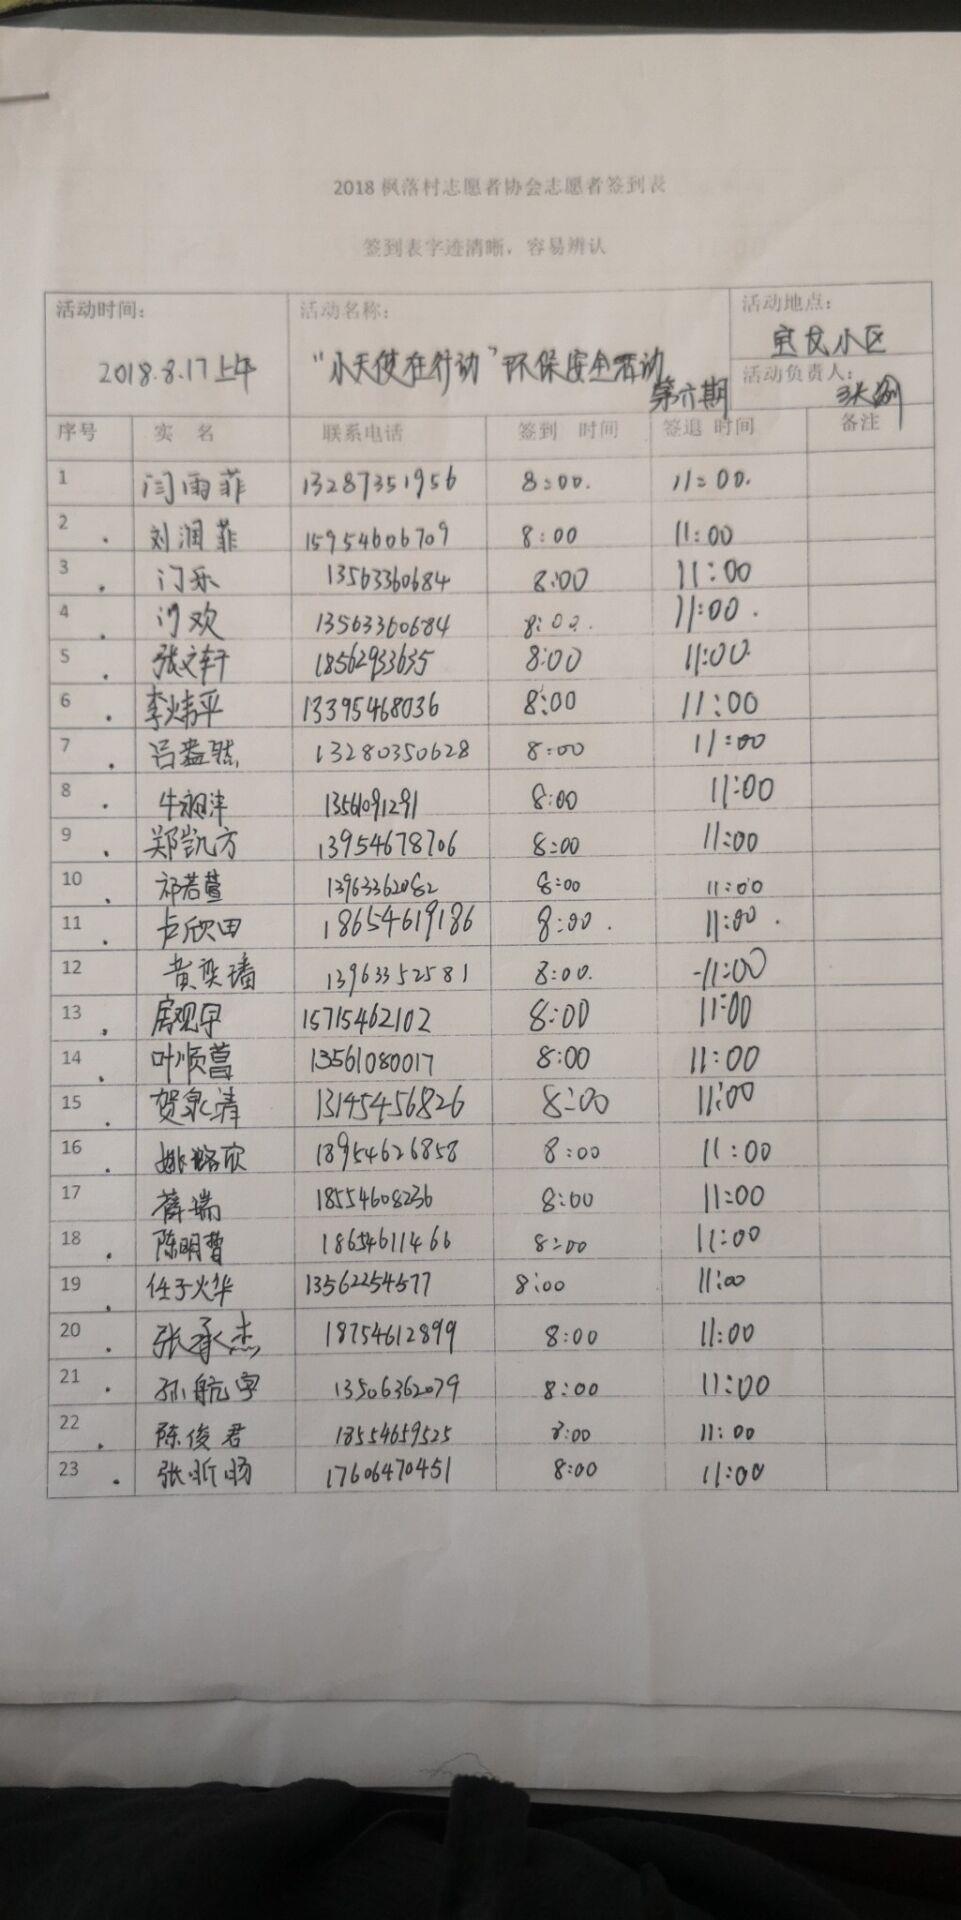 2018 枫落村志愿者协会志愿者签到表
签到表字迹清晰，容易辨认
活动时间： 活动名称： 活动地点：
2018.8.17上午 “小天使在行动”环保安全活动 第六期 小区
活动负责人： 张
序号 实 名 联系电话 签到 时间 签退 时间 备注
1 闫雨菲 13287351956 8:00. 11:00.
2 刘润菲 15954606709 8:00 11:00
3 门乐 13563360684 8:00 11:00
4 门欢 13563360684 8:00. 11:00.
5 张文轩 18562933635 8:00 11:00
6 李炜平 13395468036 8:00 11:00
7 吕 13280350628 8:00 11:00
8 牛 13561091291 8:00 11:00
9 郑凯方 13954678706 8:00 11:00
10 祁若萱 13963362082 8:00 11:00
11 卢欣田 18654619186 8:00. 11:00.
12 黄奕 13963352581 8:00. 11:00
13 房 15715462102 8:00 11:00
14 叶顺菖 13561080017 8:00 11:00
15 贺泉清 13145456826 8:00 11:00
16 姚 18954626858 8:00 11:00
17 薛瑞 18554608236 8:00 11:00
18 陈明 18654611466 8:00 11:00
19 任子火华 13562254577 8:00 11:00
20 张承杰 18754612899 8:00 11:00
21 孙航宇 13506362079 8:00 11:00
22 陈俊君 18554659525 8:00 11:00
23 张昕旸 17606470451 8:00 11:00